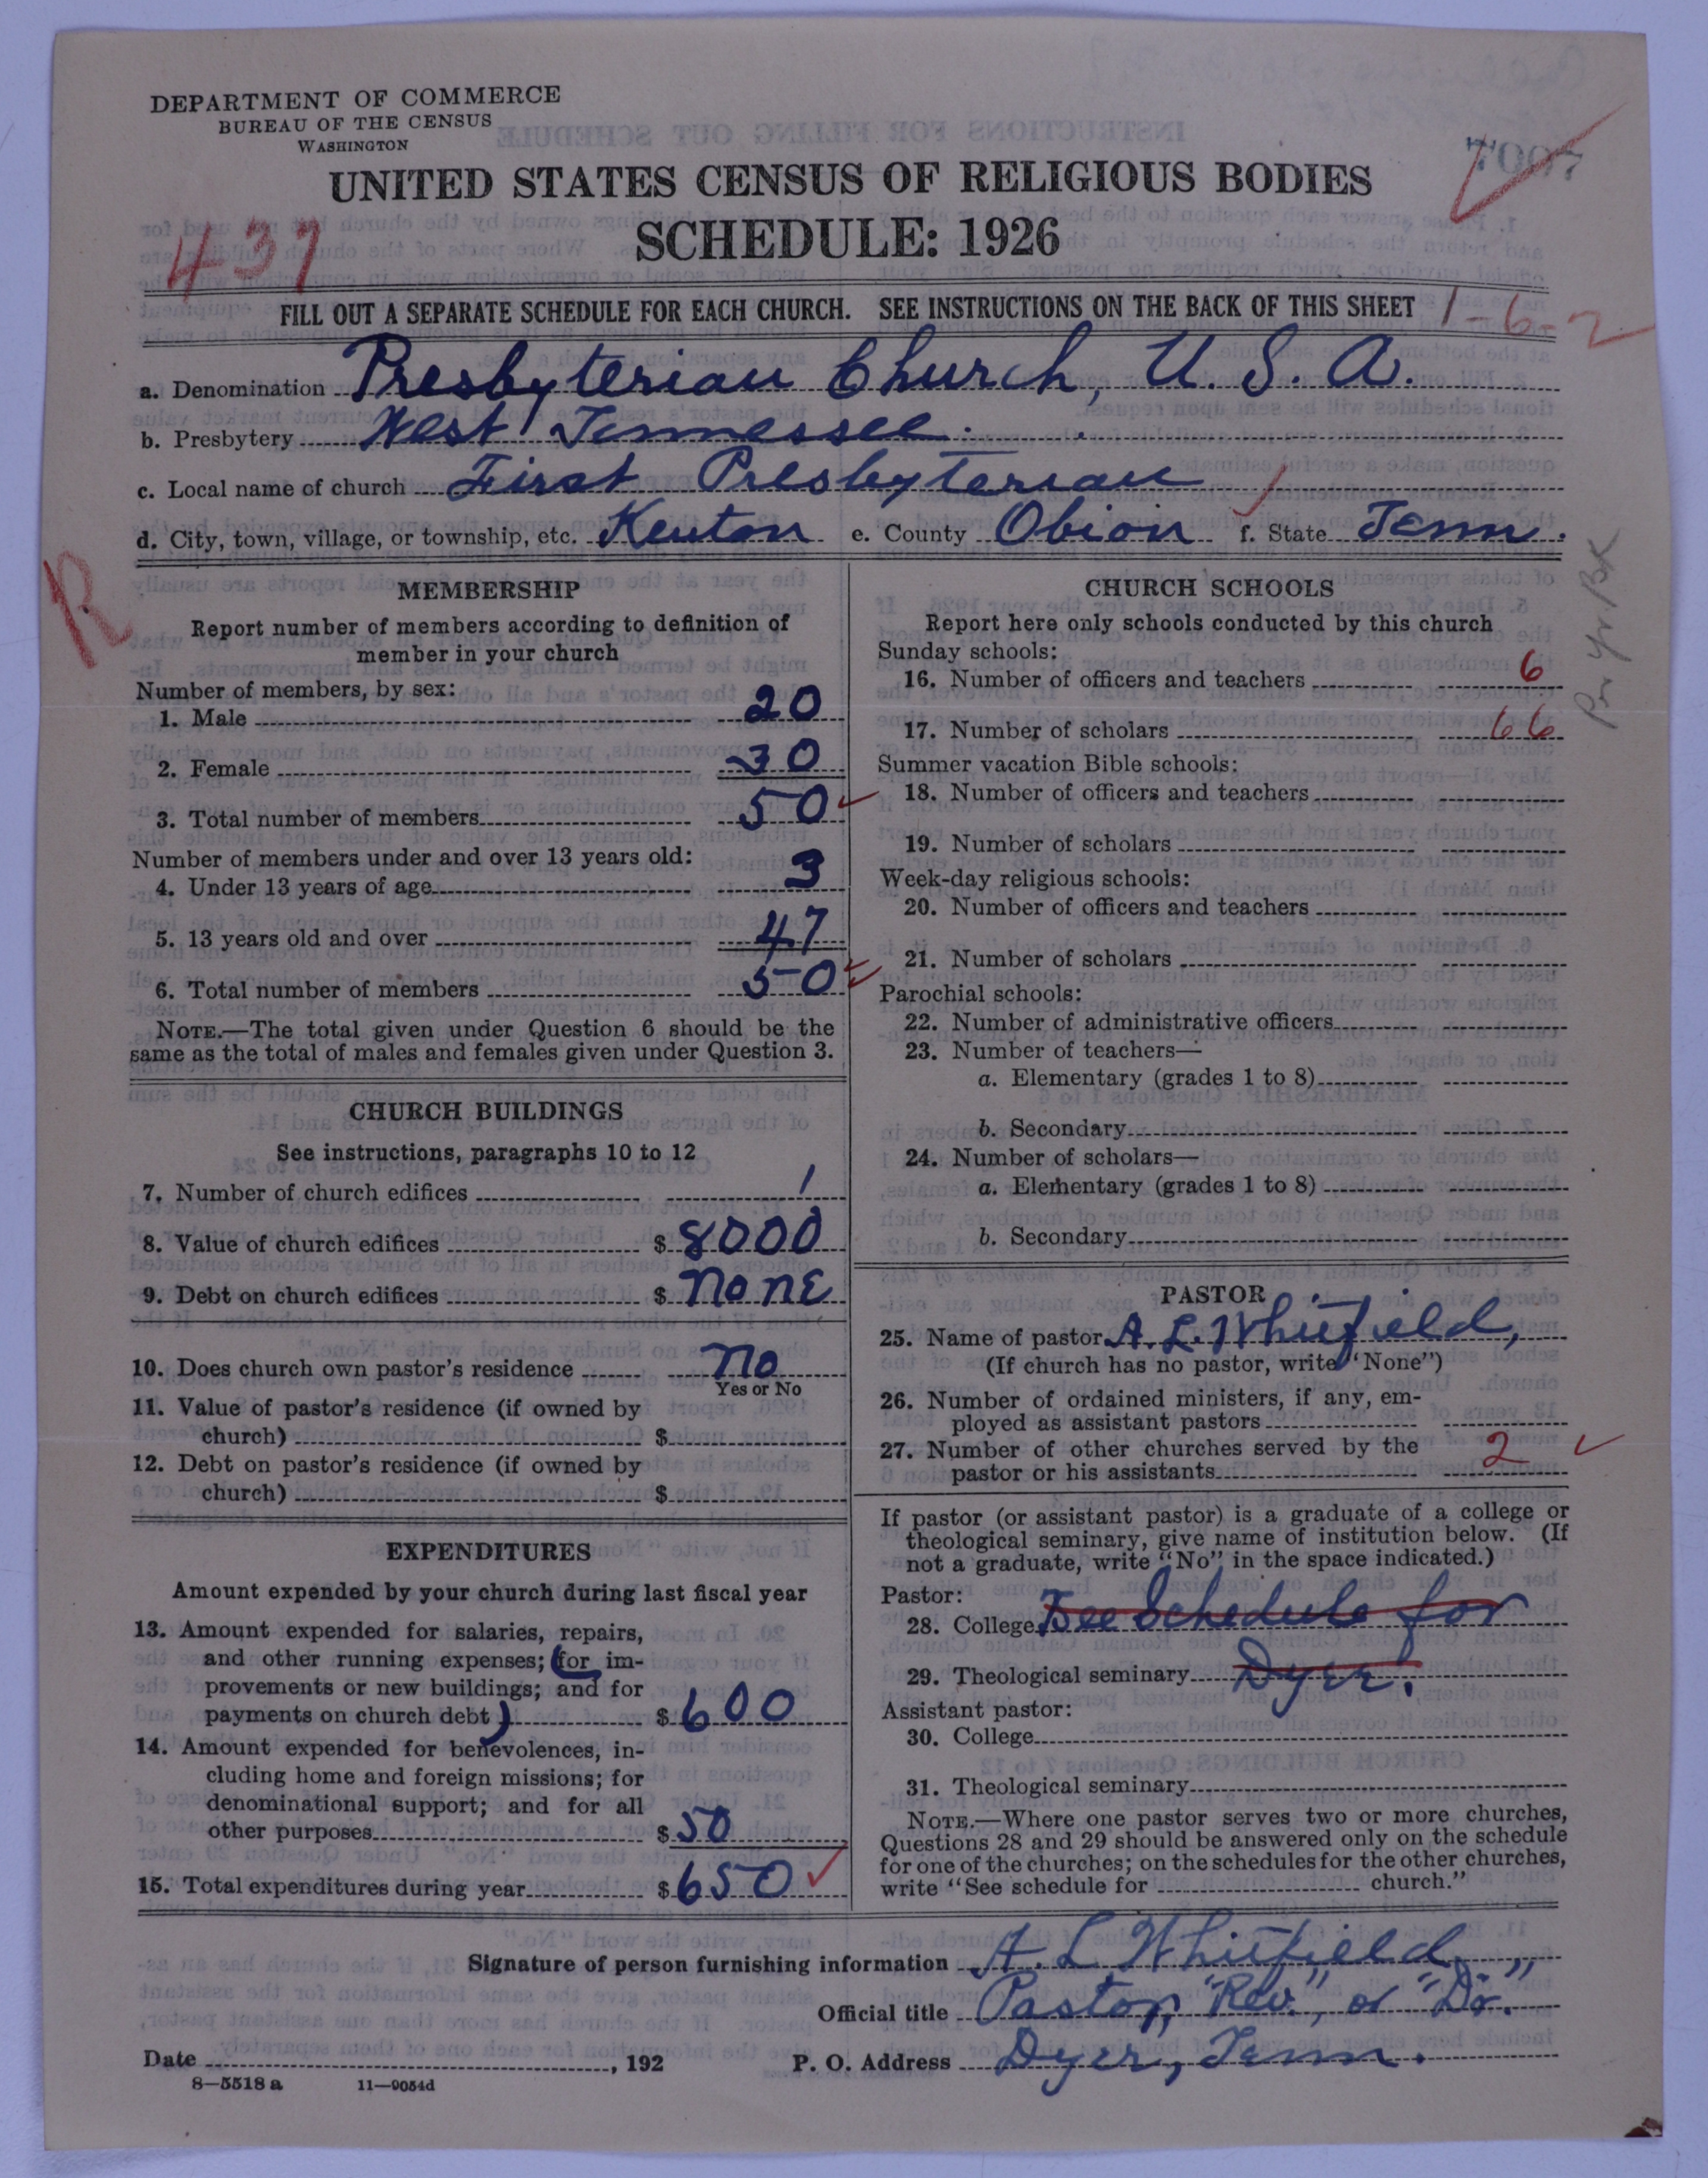 DEPARTMENT OF COMMERCE
BUREAU OF THE CENSUS
WASHINGTON
7007
UNITED STATES CENSUS OF RELIGIOUS BODIES
SCHEDULE: 1926
437
FILL OUT A SEPARATE SCHEDULE FOR EACH CHURCH. SEE INSTRUCTIONS ON THE BACK OF THIS SHEET
1-6-2
a. Denomination Presbyterian Church, U. S. A.
b. Presbytery West Tennessee.
c. Local name of church First Presbyterian
d. City, town, village, or township, etc. Kenton e. County Obion f. State Tenn.
R
MEMBERSHIP
Report number of members according to definition of
member in your church
Number of members, by sex:
1. Male 20
2. Female 30
3. Total number of members 50
Number of members under and over 13 years old:
4. Under 13 years of age 3
5. 13 years old and over 47
6. Total number of members 50
NOTE.—The total given under Question 6 should be the
same as the total of males and females given under Question 3.
CHURCH BUILDINGS
See instructions, paragraphs 10 to 12
7. Number of church edifices 1
8. Value of church edifices $ 8000
9. Debt on church edifices $ None
10. Does church own pastor's residence No
Yes or No
11. Value of pastor's residence (if owned by
church) $
12. Debt on pastor's residence (if owned by
church) $
EXPENDITURES
Amount expended by your church during last fiscal year
13. Amount expended for salaries, repairs,
and other running expenses; (for im-
provements or new buildings; and for
payments on church debt) $ 600
14. Amount expended for benevolences, in-
cluding home and foreign missions; for
denominational support; and for all
other purposes $ 50
15. Total expenditures during year $ 650
CHURCH SCHOOLS
Report here only schools conducted by this church
Sunday schools:
16. Number of officers and teachers 6
17. Number of scholars 66
Pr Yr Bk
Summer vacation Bible schools:
18. Number of officers and teachers
19. Number of scholars
Week-day religious schools:
20. Number of officers and teachers
21. Number of scholars
Parochial schools:
22. Number of administrative officers
23. Number of teachers—
a. Elementary (grades 1 to 8)
b. Secondary
24. Number of scholars—
a. Elementary (grades 1 to 8)
b. Secondary
PASTOR
25. Name of pastor A. L. Whitfield,
(If church has no pastor, write "None")
26. Number of ordained ministers, if any, em-
ployed as assistant pastors
27. Number of other churches served by the
pastor or his assistants 2
If pastor (or assistant pastor) is a graduate of a college or
theological seminary, give name of institution below. (If
not a graduate, write "No" in the space indicated.)
Pastor:
28. College See Schedule for
29. Theological seminary Dyer.
Assistant pastor:
30. College
31. Theological seminary
NOTE.—Where one pastor serves two or more churches,
Questions 28 and 29 should be answered only on the schedule
for one of the churches; on the schedules for the other churches,
write "See schedule for church."
Signature of person furnishing information A. L Whitfield
Official title Pastor, "Rev.", or "Dr."
Date , 192 P. O. Address Dyer, Tenn.
8—5518 a 11—9054d